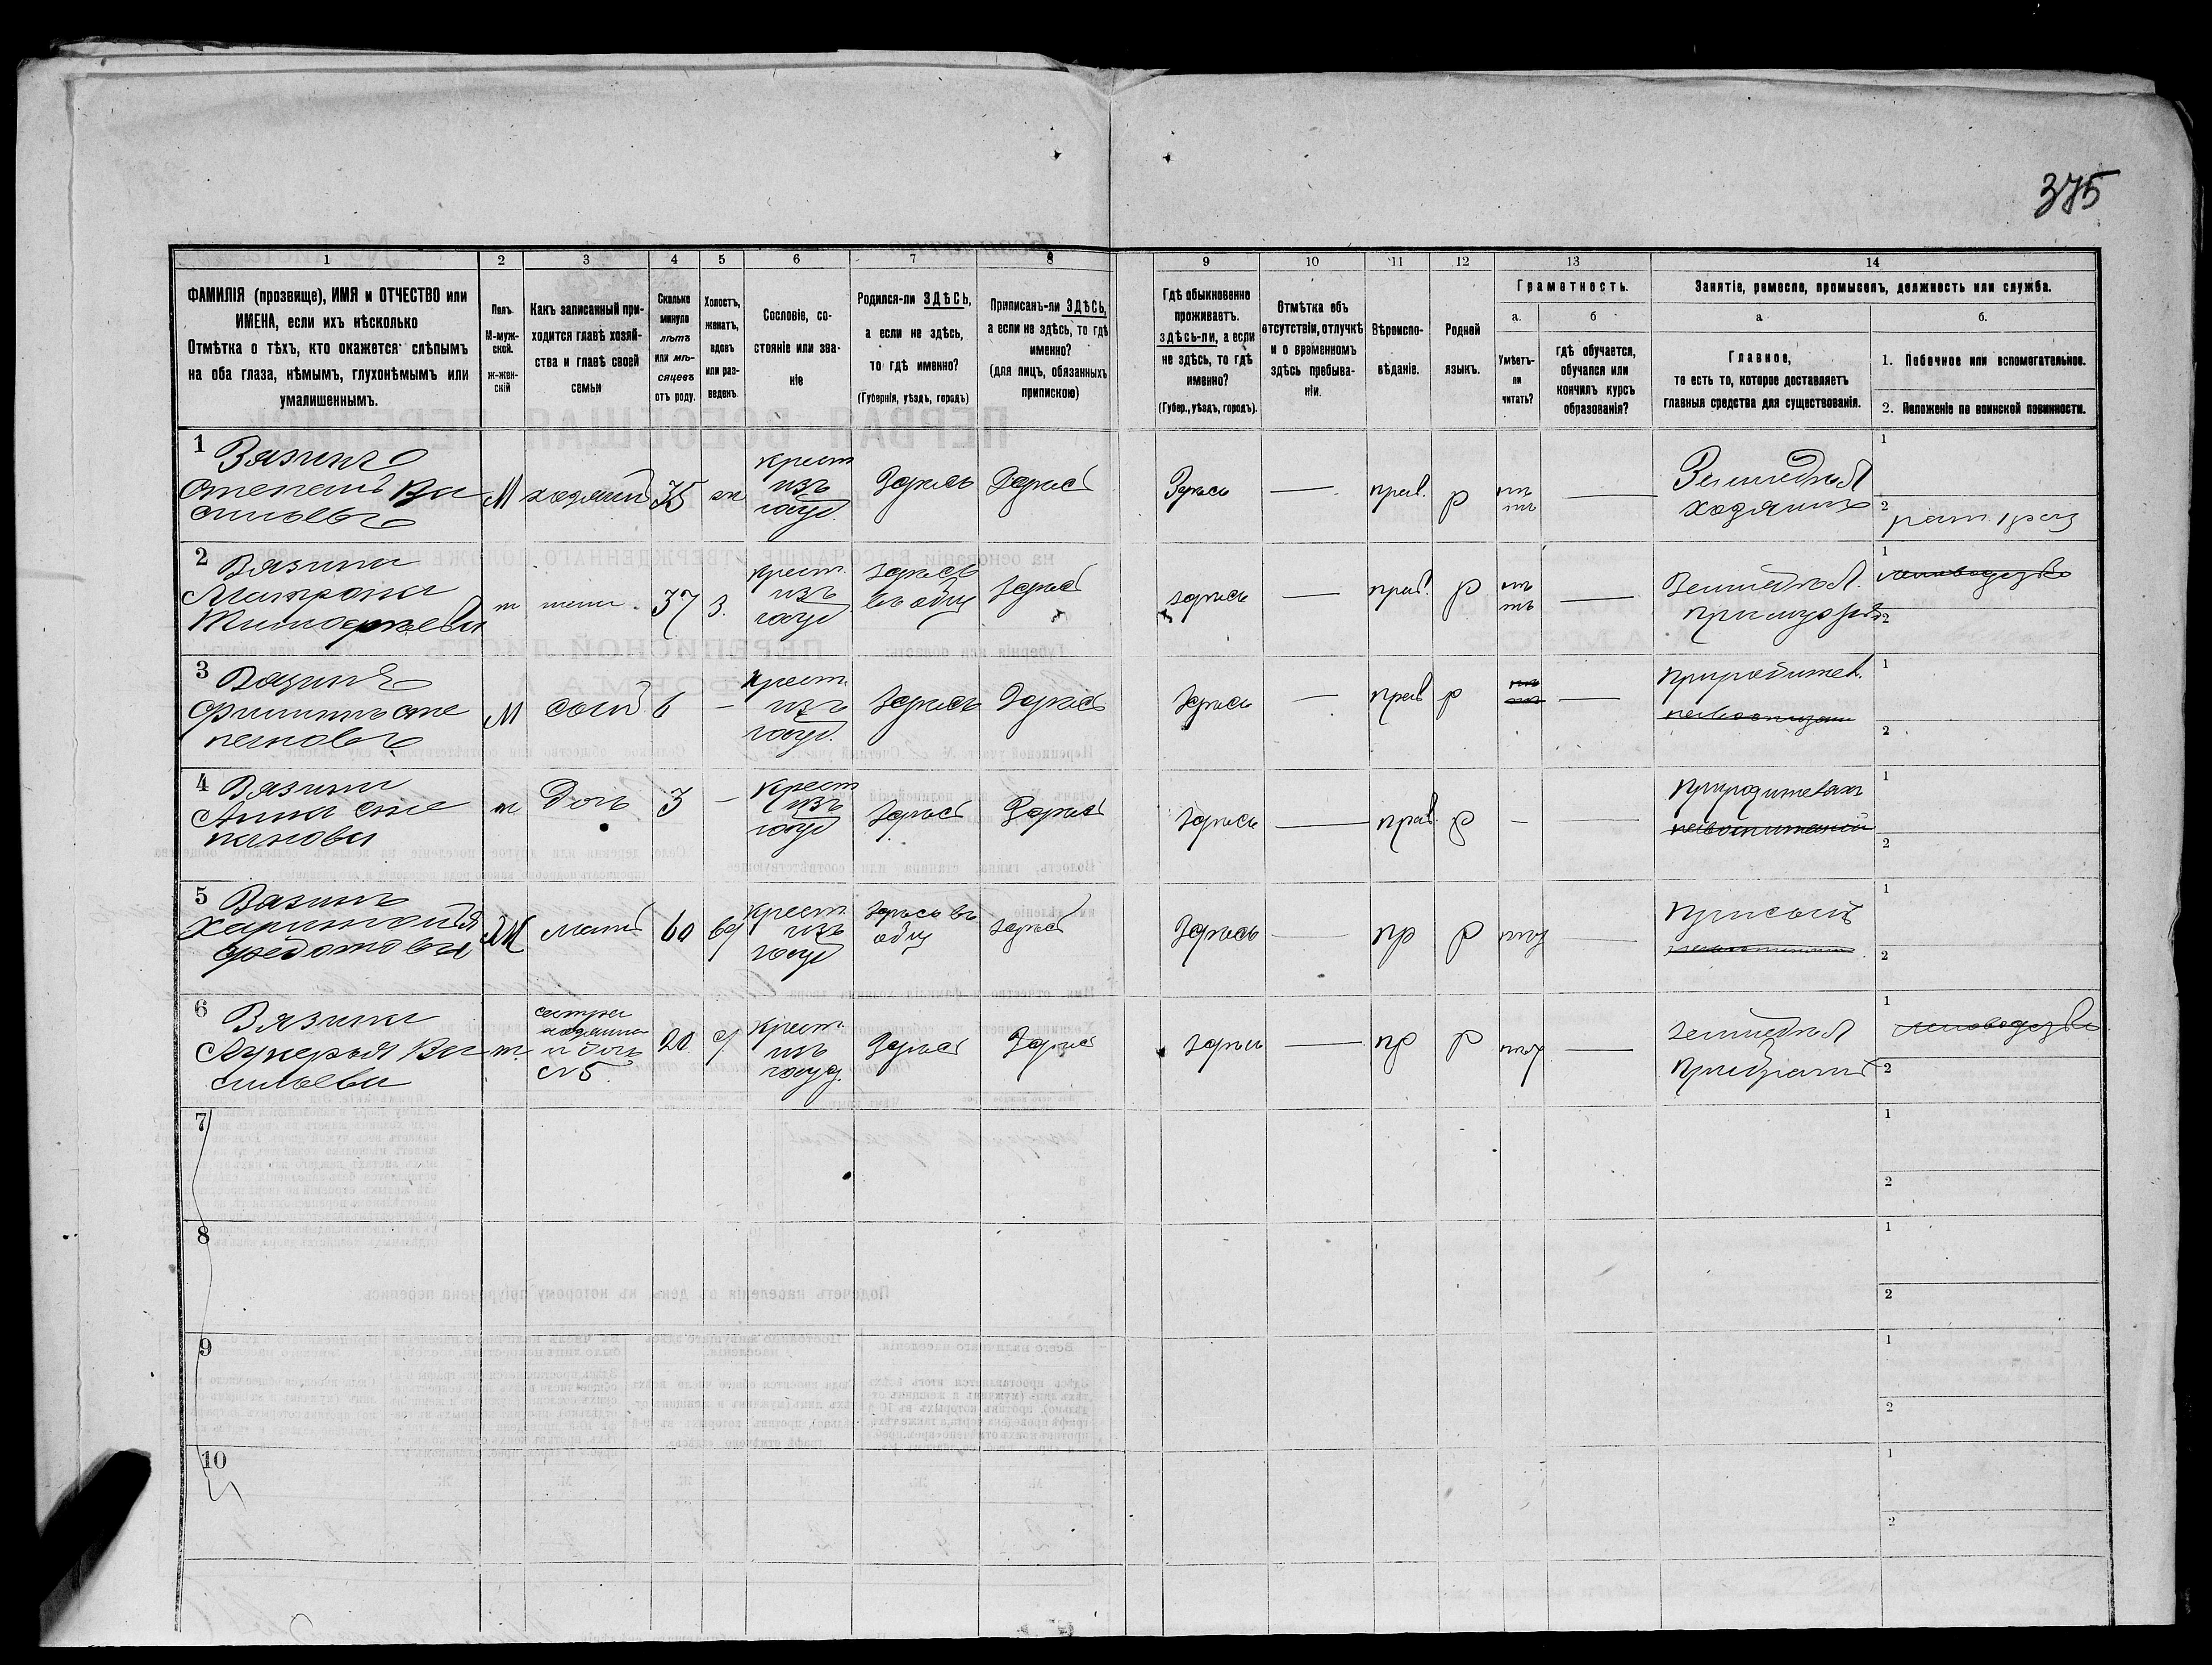 375
1 2 3 4 5 6 7 8 9 10 11 12 13 14
ФАМИЛІЯ (прозвище), ИМЯ и ОТЧЕСТВО или
ИМЕНА, если ихъ нѣсколько
Отмѣтка о тѣхъ, кто окажется слѣпымъ
на оба глаза, нѣмымъ, глухонѣмымъ или
умалишеннымъ.
Полъ.
М-муж-
ской.
ж-жен-
скій
Какъ записанный при-
ходится главѣ хозяй-
ства и главѣ своей
семьи
Сколько
минуло
лѣтъ
или мѣ-
сяцевъ
отъ роду.
Холостъ,
женатъ,
вдовъ
или раз-
веденъ.
Сословіе, со-
стояніе или зва-
ніе
Родился-ли ЗДѢСЬ,
а если не здѣсь,
то гдѣ именно?
(Губернія, уѣздъ, городъ)
Приписанъ-ли ЗДѢСЬ,
а если не здѣсь, то гдѣ
именно?
(для лицъ, обязанныхъ
припискою)
Гдѣ обыкновенно
проживаетъ.
здѣсь-ли, а если
не здѣсь, то гдѣ
именно?
(Губер., уѣздъ, городъ).
Отмѣтка объ
отсутствіи, отлучкѣ
и о временномъ
здѣсь пребыва-
ніи.
Вѣроиспо-
вѣданіе.
Родной
языкъ.
Грамотность.
а.
Умѣетъ-
ли
читать?
б
гдѣ обучается,
обучался или
кончилъ курсъ
образованія?
Занятіе, ремесло, промыселъ, должность или служба.
а
Главное,
то есть то, которое доставляетъ
главныя средства для существованія.
б.
1. Побочное или вспомогательное.
2. Положеніе по воинской повинности.
1 Вязинъ
Степанъ Ва
сильевъ
М хозяинъ 35 жн
крест
изъ
госуд.
Здѣсь Здѣсь Здѣсь — прав. р
нѣ
тъ
—
Земледѣл
хозяинъ
1
2 рат. 1 раз
2 Вязина
Матрона
Тимофѣева
ж жена 37 З.
крест.
изъ
госуд
здѣсь
въ
здѣсь здѣсь — прав. р
нѣ
тъ
—
Земледѣл.
при мужѣ
1
2
3 Вязинъ
Филиппъ Сте
пановъ
М сынъ 6 —
крест.
изъ
госуд.
Здѣсь Здѣсь Здѣсь — прав р
—
При родител.
1
2
4 Вязина
Анна Сте
панова
ж Дочь 3 —
крест
изъ
госуд
здѣсь Здѣсь здѣсь — прав. р — —
При родителяхъ
1
2
5 Вязинъ
Федотова
Ж мать 60 вд
крест.
изъ
госуд
здѣсь въ
здѣсь Здѣсь — пр р нѣт —
При сынѣ
1
2
6 Вязина
Лукерья Ва
сильева
ж
сестра
хозяина
и дочь
20 д
крест.
изъ
госуд.
Здѣсь Здѣсь здѣсь — пр р нѣт —
земледѣл
При братѣ
1
2
7
1
2
8
1
2
9
1
2
10
1
2